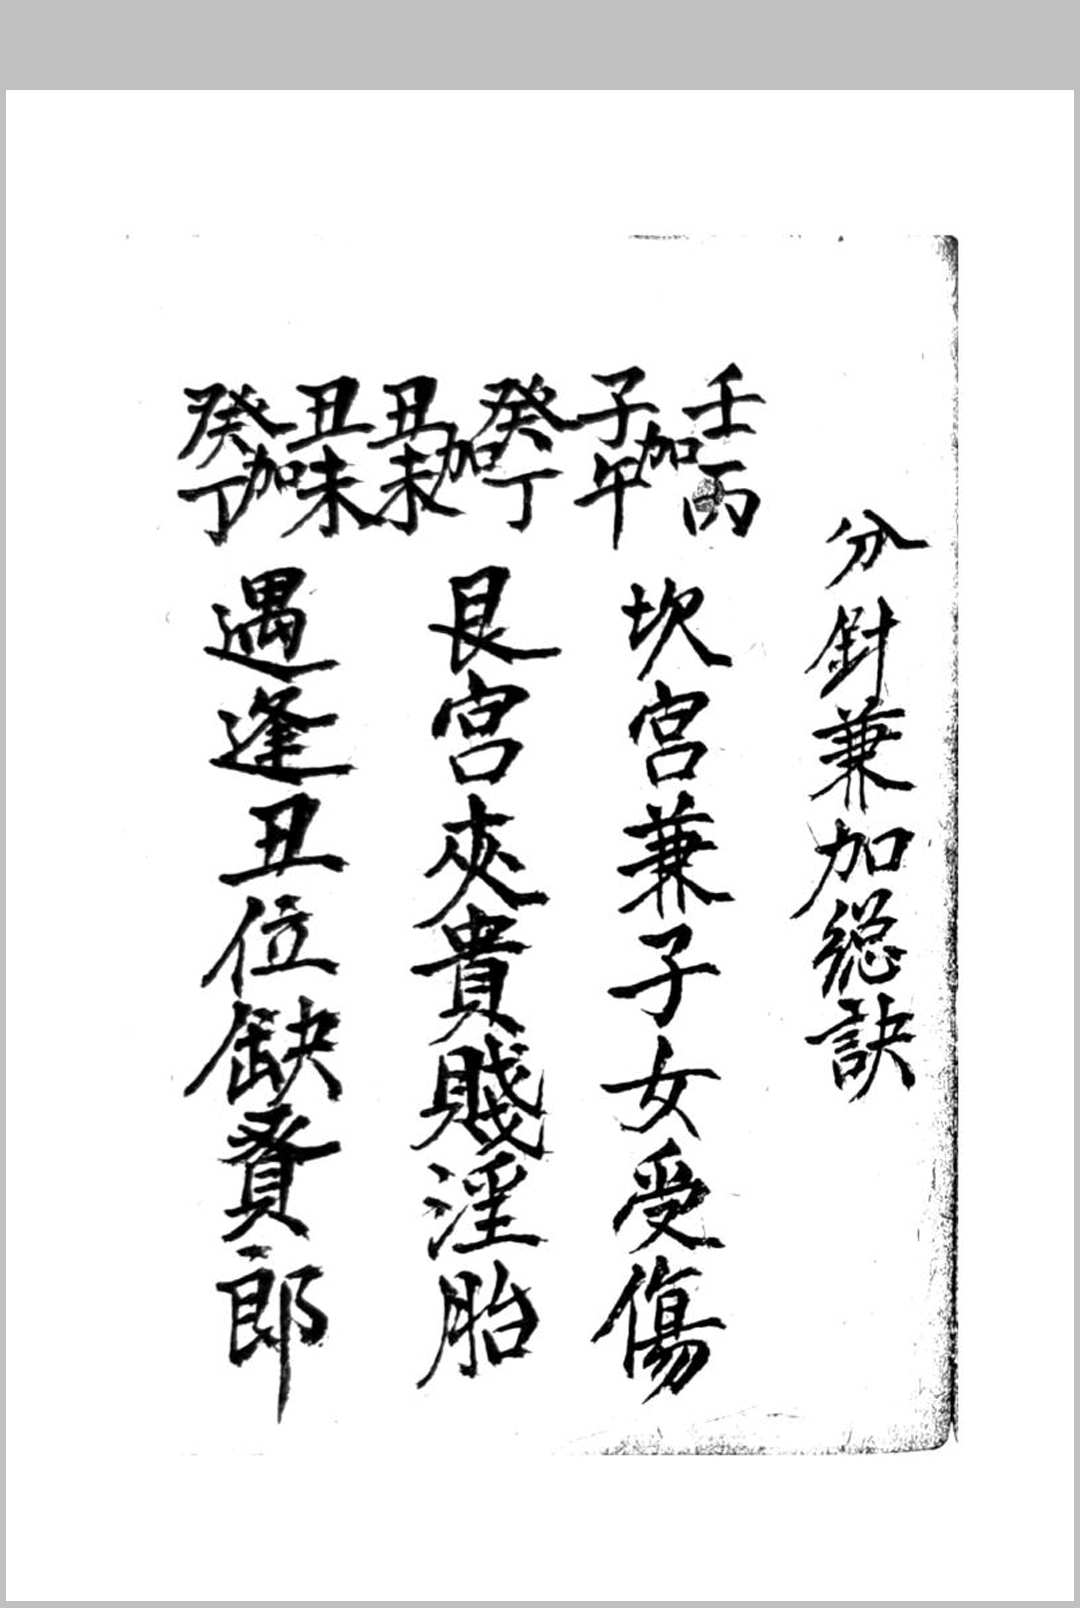 分針兼加総訣
壬丙加子午
坎宮兼子女受傷
癸丁加丑未
艮宮夾貴賤淫胎
丑未加癸丁
遇逢丑位缺賢郎